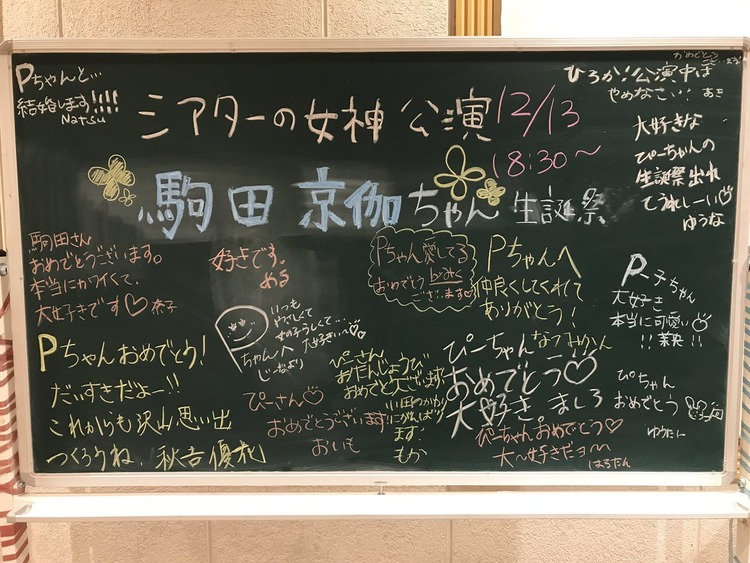 Pちゃんと…
結婚します!!!!
Natsu
シアターの女神 公演
12/13
18:30〜
おめでとう
ひろか!公演中は
やめなさい!! あき
大好きな
ぴーちゃんの
生誕祭出れ
てうれしーい♡
ゆうな
駒田京伽ちゃん 生誕祭
駒田さん
おめでとうございます。
本当にカワイくて、
大好きです♡ 奈子
好きです。
める
Pちゃん愛してる
おめでとう
ございます♡
Pちゃんへ
仲良くしてくれて
ありがとう!
なつみかん
P子ちゃん
大好き
本当に可愛い
!! 葉央 !!
いつも
やさしくて
女の子らしくて…
大好きぃ〜♡♡
Pちゃんへ
じーなより
Pちゃんおめでとう!
だいすきだよー!!
これからも沢山思い出
つくろうね、秋吉優花
ぴーさん
おたんじょうび
おめでとうございます
ます!
もか
ぴーさん♡
おめでとうござい
おいも
ぴーちゃん
おめでとう♡
大好き。ましろ
ぴちゃん
おめでとう
ゆうたん
ぴーちゃんおめでとう♡
大〜好きだョ〜
はるたん